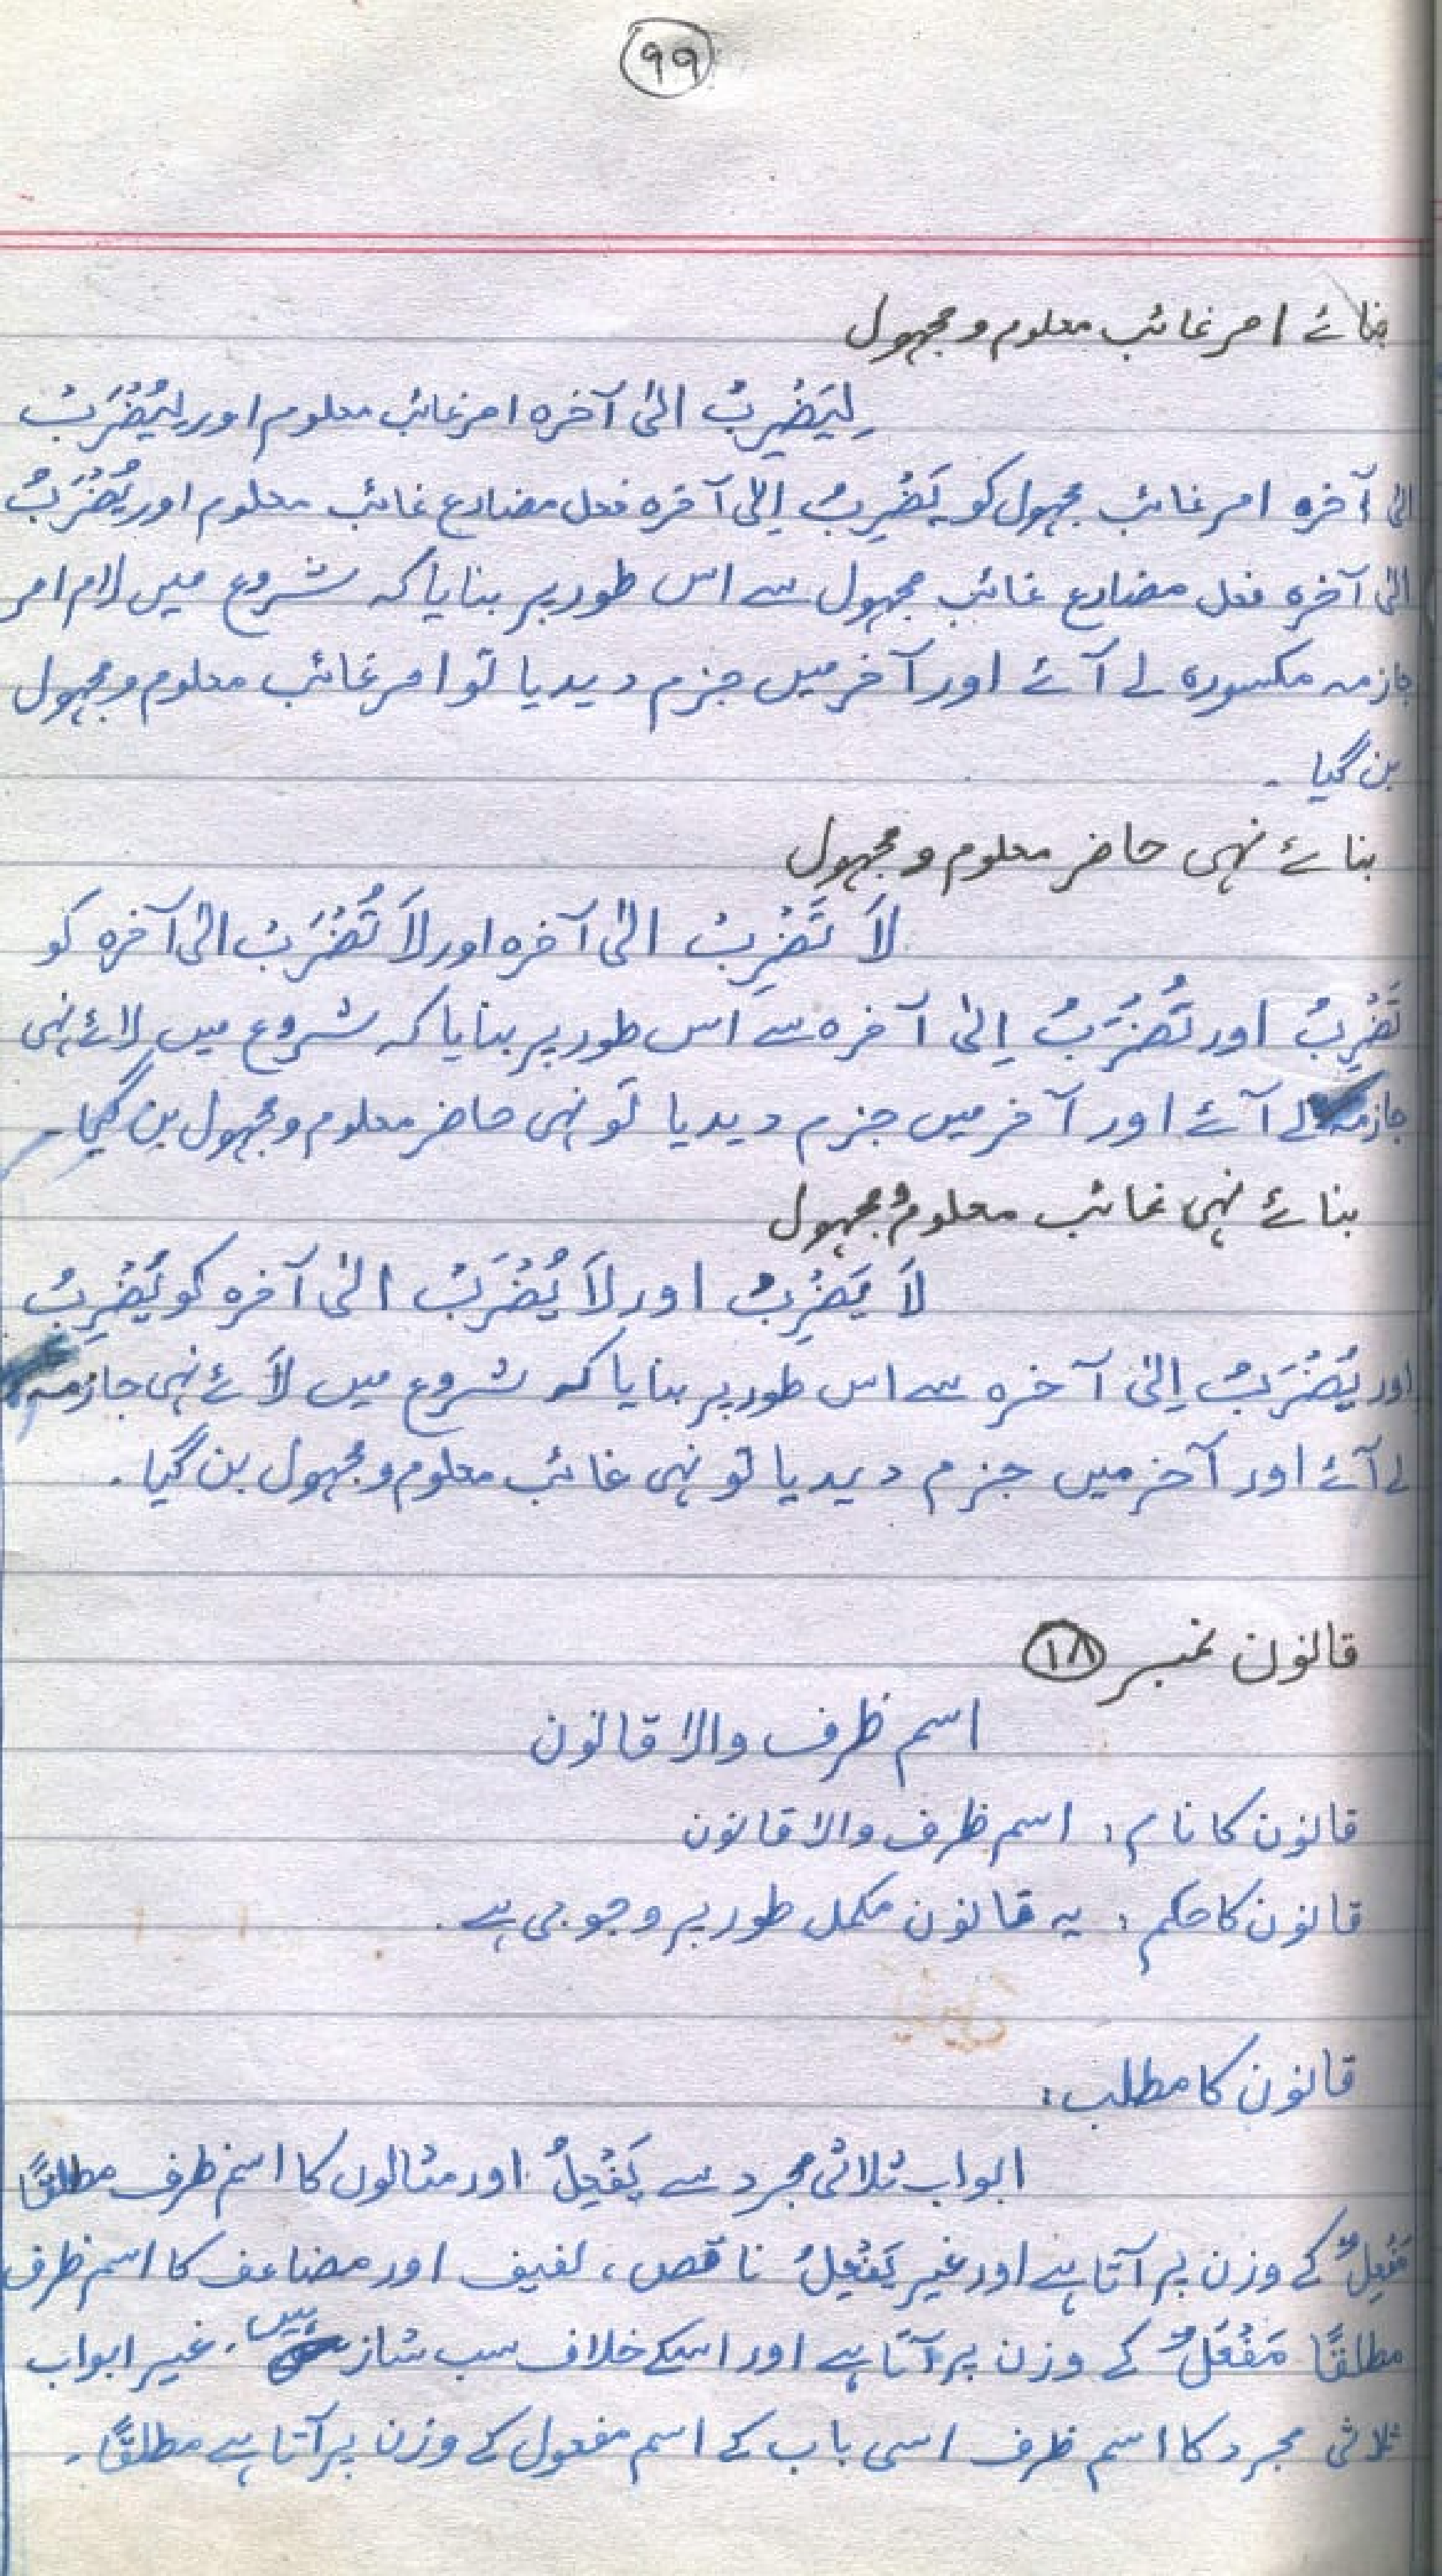 ۹۹
بنائے امر غائب معلوم و مجہول
لِیَضْرِبْ الیٰ آخرہ امر غائب معلوم اور لِیُضْرَبْ
الیٰ آخرہ امر غائب مجہول کو یَضْرِبُ اِلیٰ آخرہ فعل مضارع غائب معلوم اور یُضْرَبُ
الیٰ آخرہ فعل مضارع غائب مجہول سے اس طور پر بنایا کہ شروع میں لام امر
جازمہ مکسورہ لے آئے اور آخر میں جزم دیدیا تو امر غائب معلوم و مجہول
بن گیا ۔
بنائے نہی حاضر معلوم و مجہول
لاَ تَضْرِبْ الیٰ آخرہ اور لاَ تُضْرَبْ الیٰ آخرہ کو
تَضْرِبُ اور تُضْرَبُ اِلیٰ آخرہ سے اس طور پر بنایا کہ شروع میں لائے نہی
جازمہ لے آئے اور آخر میں جزم دیدیا تو نہی حاضر معلوم و مجہول بن گیا ۔
بنائے نہی غائب معلوم و مجہول
لاَ یَضْرِبْ اور لاَ یُضْرَبْ الیٰ آخرہ کو یَضْرِبُ
اور یُضْرَبُ اِلیٰ آخرہ سے اس طور پر بنایا کہ شروع میں لاَئے نہی جازمہ
لے آئے اور آخر میں جزم دیدیا تو نہی غائب معلوم و مجہول بن گیا ۔
قانون نمبر ۱۸
اسم ظرف والا قانون
قانون کا نام : اسم ظرف والا قانون
قانون کا حکم : یہ قانون مکمل طور پر وجوبی ہے ۔
قانون کا مطلب :
ابواب ثلاثی مجرد سے یَفْعِلُ اور مثالوں کا اسم ظرف مطلقًا
مَفْعِلٌ کے وزن پر آتا ہے اور غیر یَفْعِلُ ناقص، لفیف اور مضاعف کا اسم ظرف
مطلقًا مَفْعَلٌ کے وزن پر آتا ہے اور اسکے خلاف سب شاذ ہیں۔ غیر ابواب
ثلاثی مجرد کا اسم ظرف اسی باب کے اسم مفعول کے وزن پر آتا ہے مطلقًا ۔